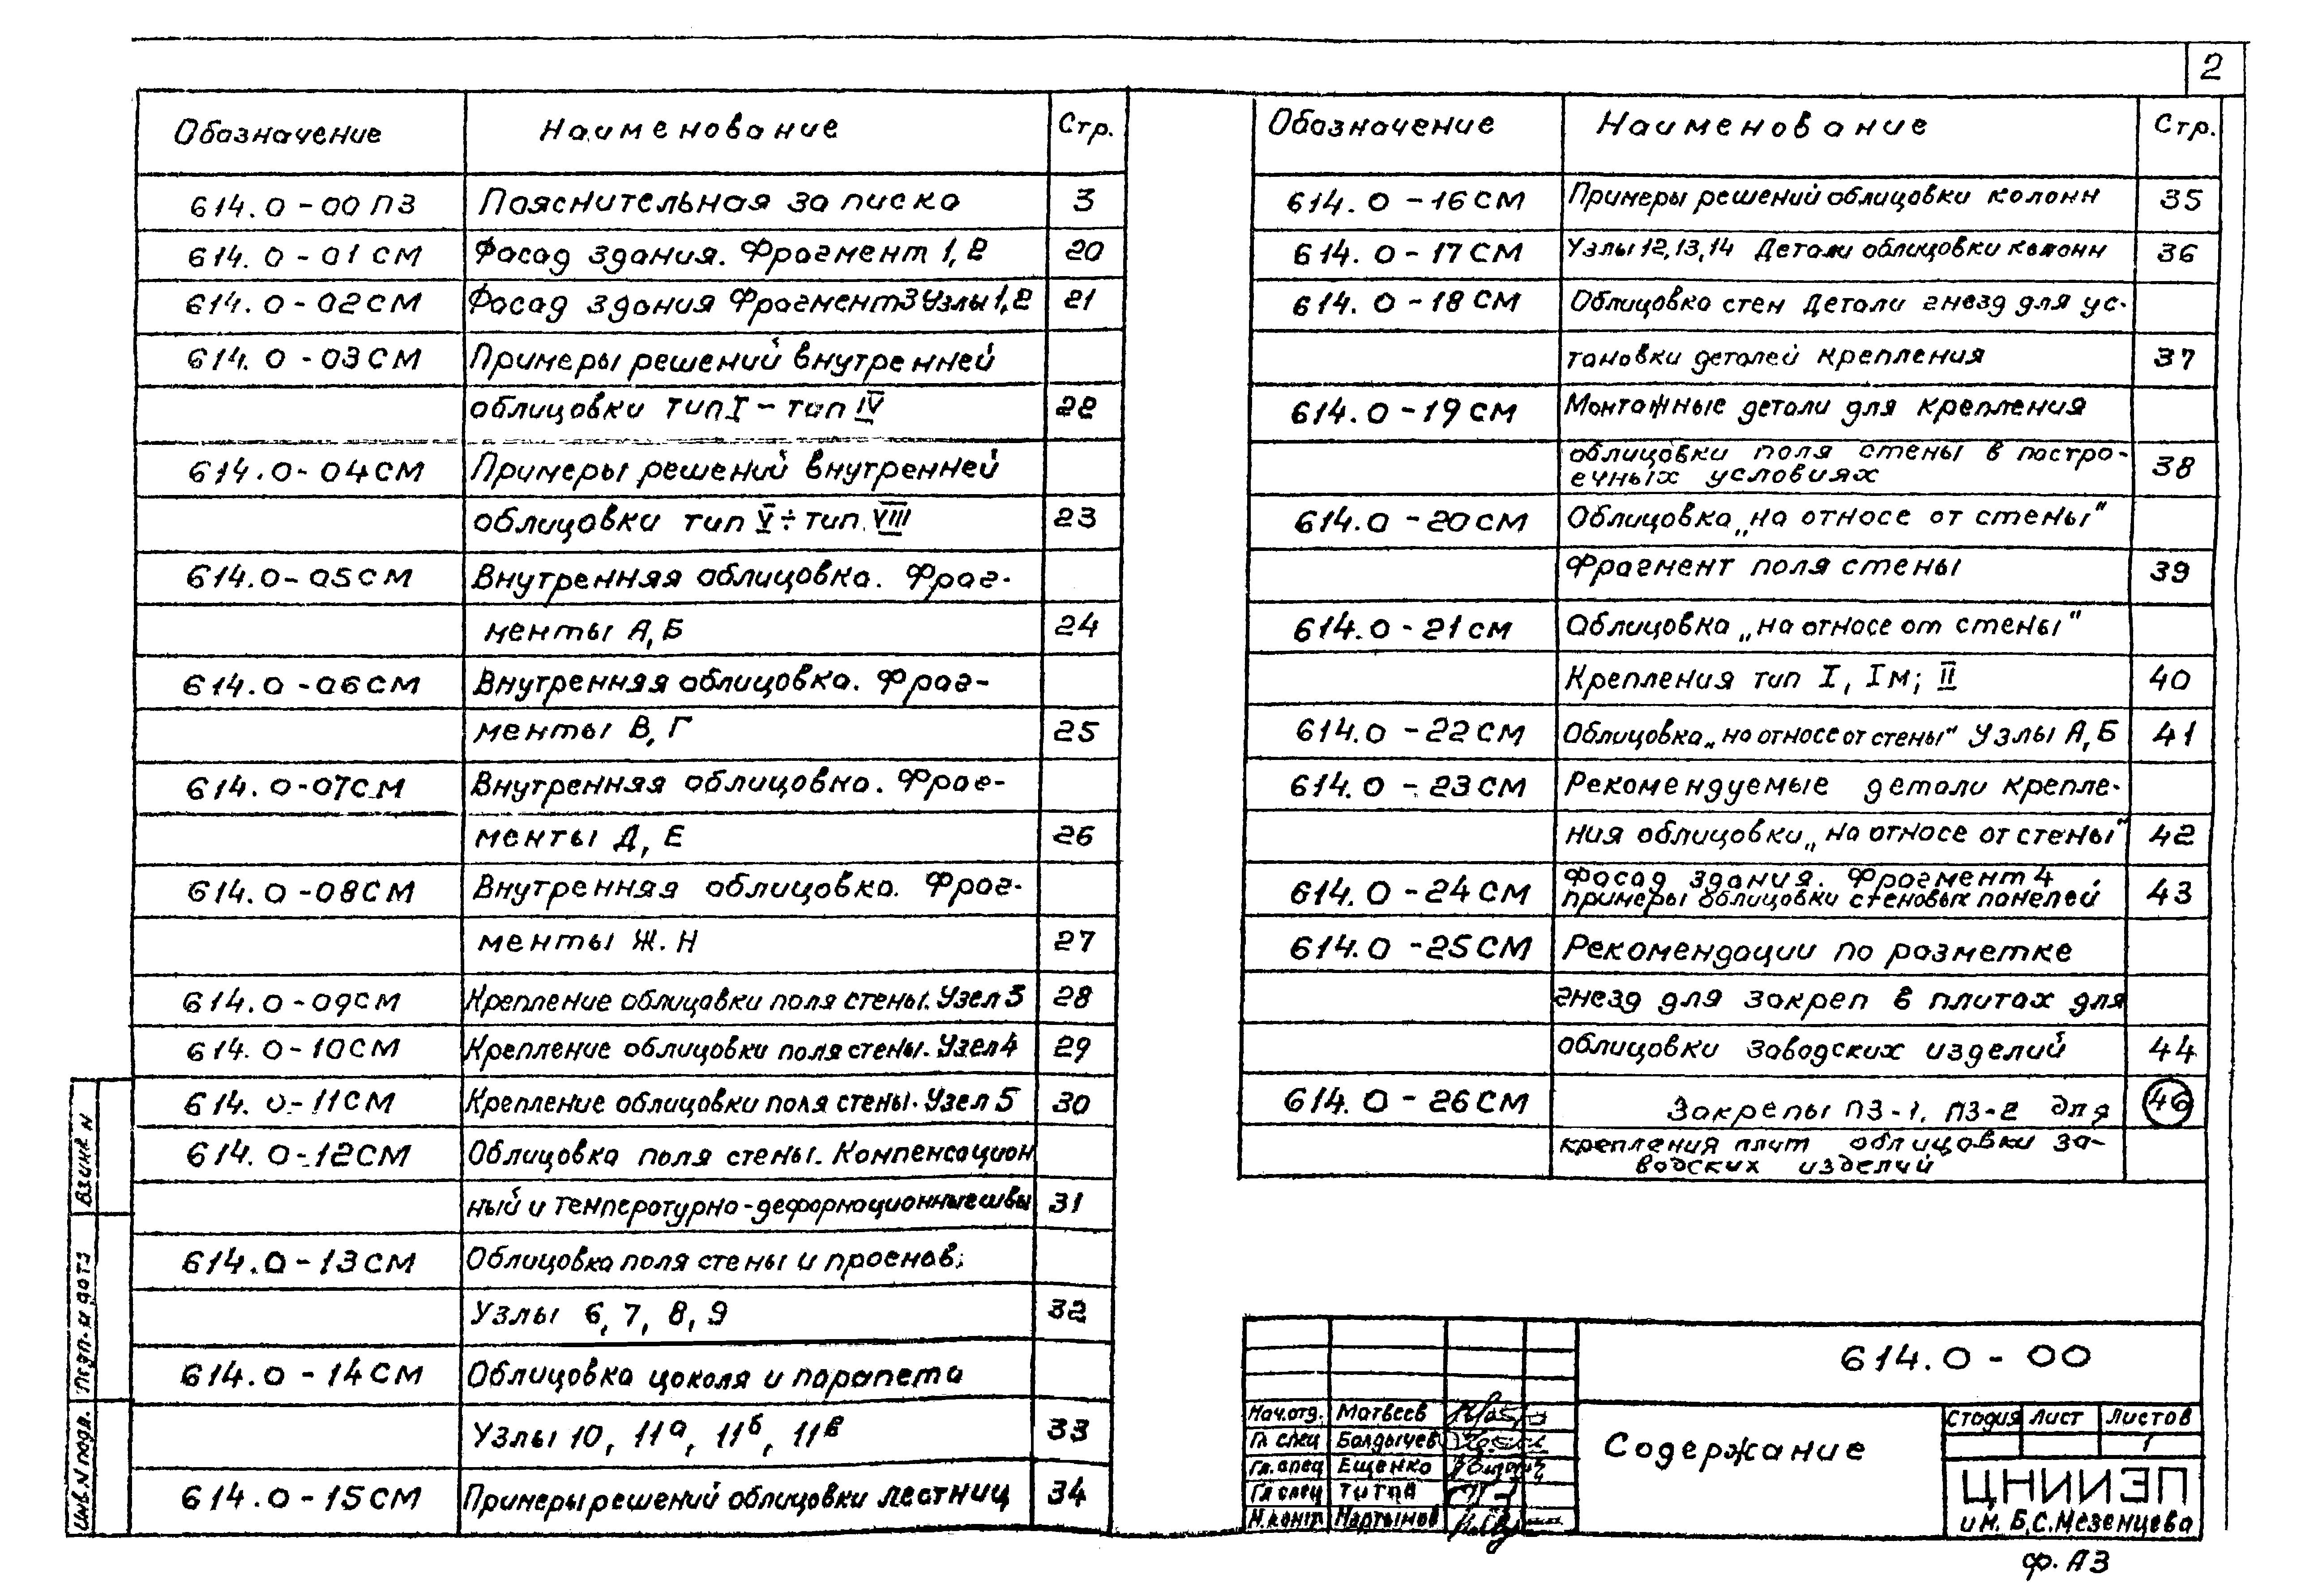 2
Обозначение Наименование Стр.
614.0-00 ПЗ Пояснительная записка 3
614.0-01 СМ Фасад здания. Фрагмент 1, 2 20
614.0-02 СМ Фасад здания Фрагмент 3 Узлы 1, 2 21
614.0-03 СМ Примеры решений внутренней
облицовки тип I - тип IV 22
614.0-04 СМ Примеры решений внутренней
облицовки тип V ÷ тип VIII 23
614.0-05 СМ Внутренняя облицовка. Фраг-
менты А, Б 24
614.0-06 СМ Внутренняя облицовка. Фраг-
менты В, Г 25
614.0-07 СМ Внутренняя облицовка. Фраг-
менты Д, Е 26
614.0-08 СМ Внутренняя облицовка. Фраг-
менты Ж. Н 27
614.0-09 СМ Крепление облицовки поля стены. Узел 3 28
614.0-10 СМ Крепление облицовки поля стены. Узел 4 29
614.0-11 СМ Крепление облицовки поля стены. Узел 5 30
614.0-12 СМ Облицовка поля стены. Компенсацион
ный и температурно-деформационные швы 31
614.0-13 СМ Облицовка поля стены и проемов.
Узлы 6, 7, 8, 9 32
614.0-14 СМ Облицовка цоколя и парапета
Узлы 10, 11а, 11б, 11в 33
614.0-15 СМ Примеры решений облицовки лестниц 34
Обозначение Наименование Стр.
614.0-16 СМ Примеры решений облицовки колонн 35
614.0-17 СМ Узлы 12, 13, 14 Детали облицовки колонн 36
614.0-18 СМ Облицовка стен Детали гнезд для ус-
тановки деталей крепления 37
614.0-19 СМ Монтажные детали для крепления
облицовки поля стены в постро-
ечных условиях 38
614.0-20 СМ Облицовка „на относе от стены"
Фрагмент поля стены 39
614.0-21 СМ Облицовка „на относе от стены"
Крепления тип I, Iм; II 40
614.0-22 СМ Облицовка „на относе от стены" Узлы А, Б 41
614.0-23 СМ Рекомендуемые детали крепле-
ния облицовки „на относе от стены" 42
614.0-24 СМ Фасад здания. Фрагмент 4
примеры облицовки стеновых панелей 43
614.0-25 СМ Рекомендации по разметке
гнезд для закреп в плитах для
облицовки заводских изделий 44
614.0-26 СМ Закрепы ПЗ-1, ПЗ-2 для 46
крепления плит облицовки за-
водских изделий
Взинв N
Подп. и дата
Инв. N подл.
614.0-00
Нач.отд. Матвеев
Гл спец Болдычев
Гл. спец Ещенко
Гл спец Титла
Н.контр Мартынов
Содержание
Стадия Лист Листов
1
ЦНИИЭП
им. Б.С. Мезенцева
ф. А3